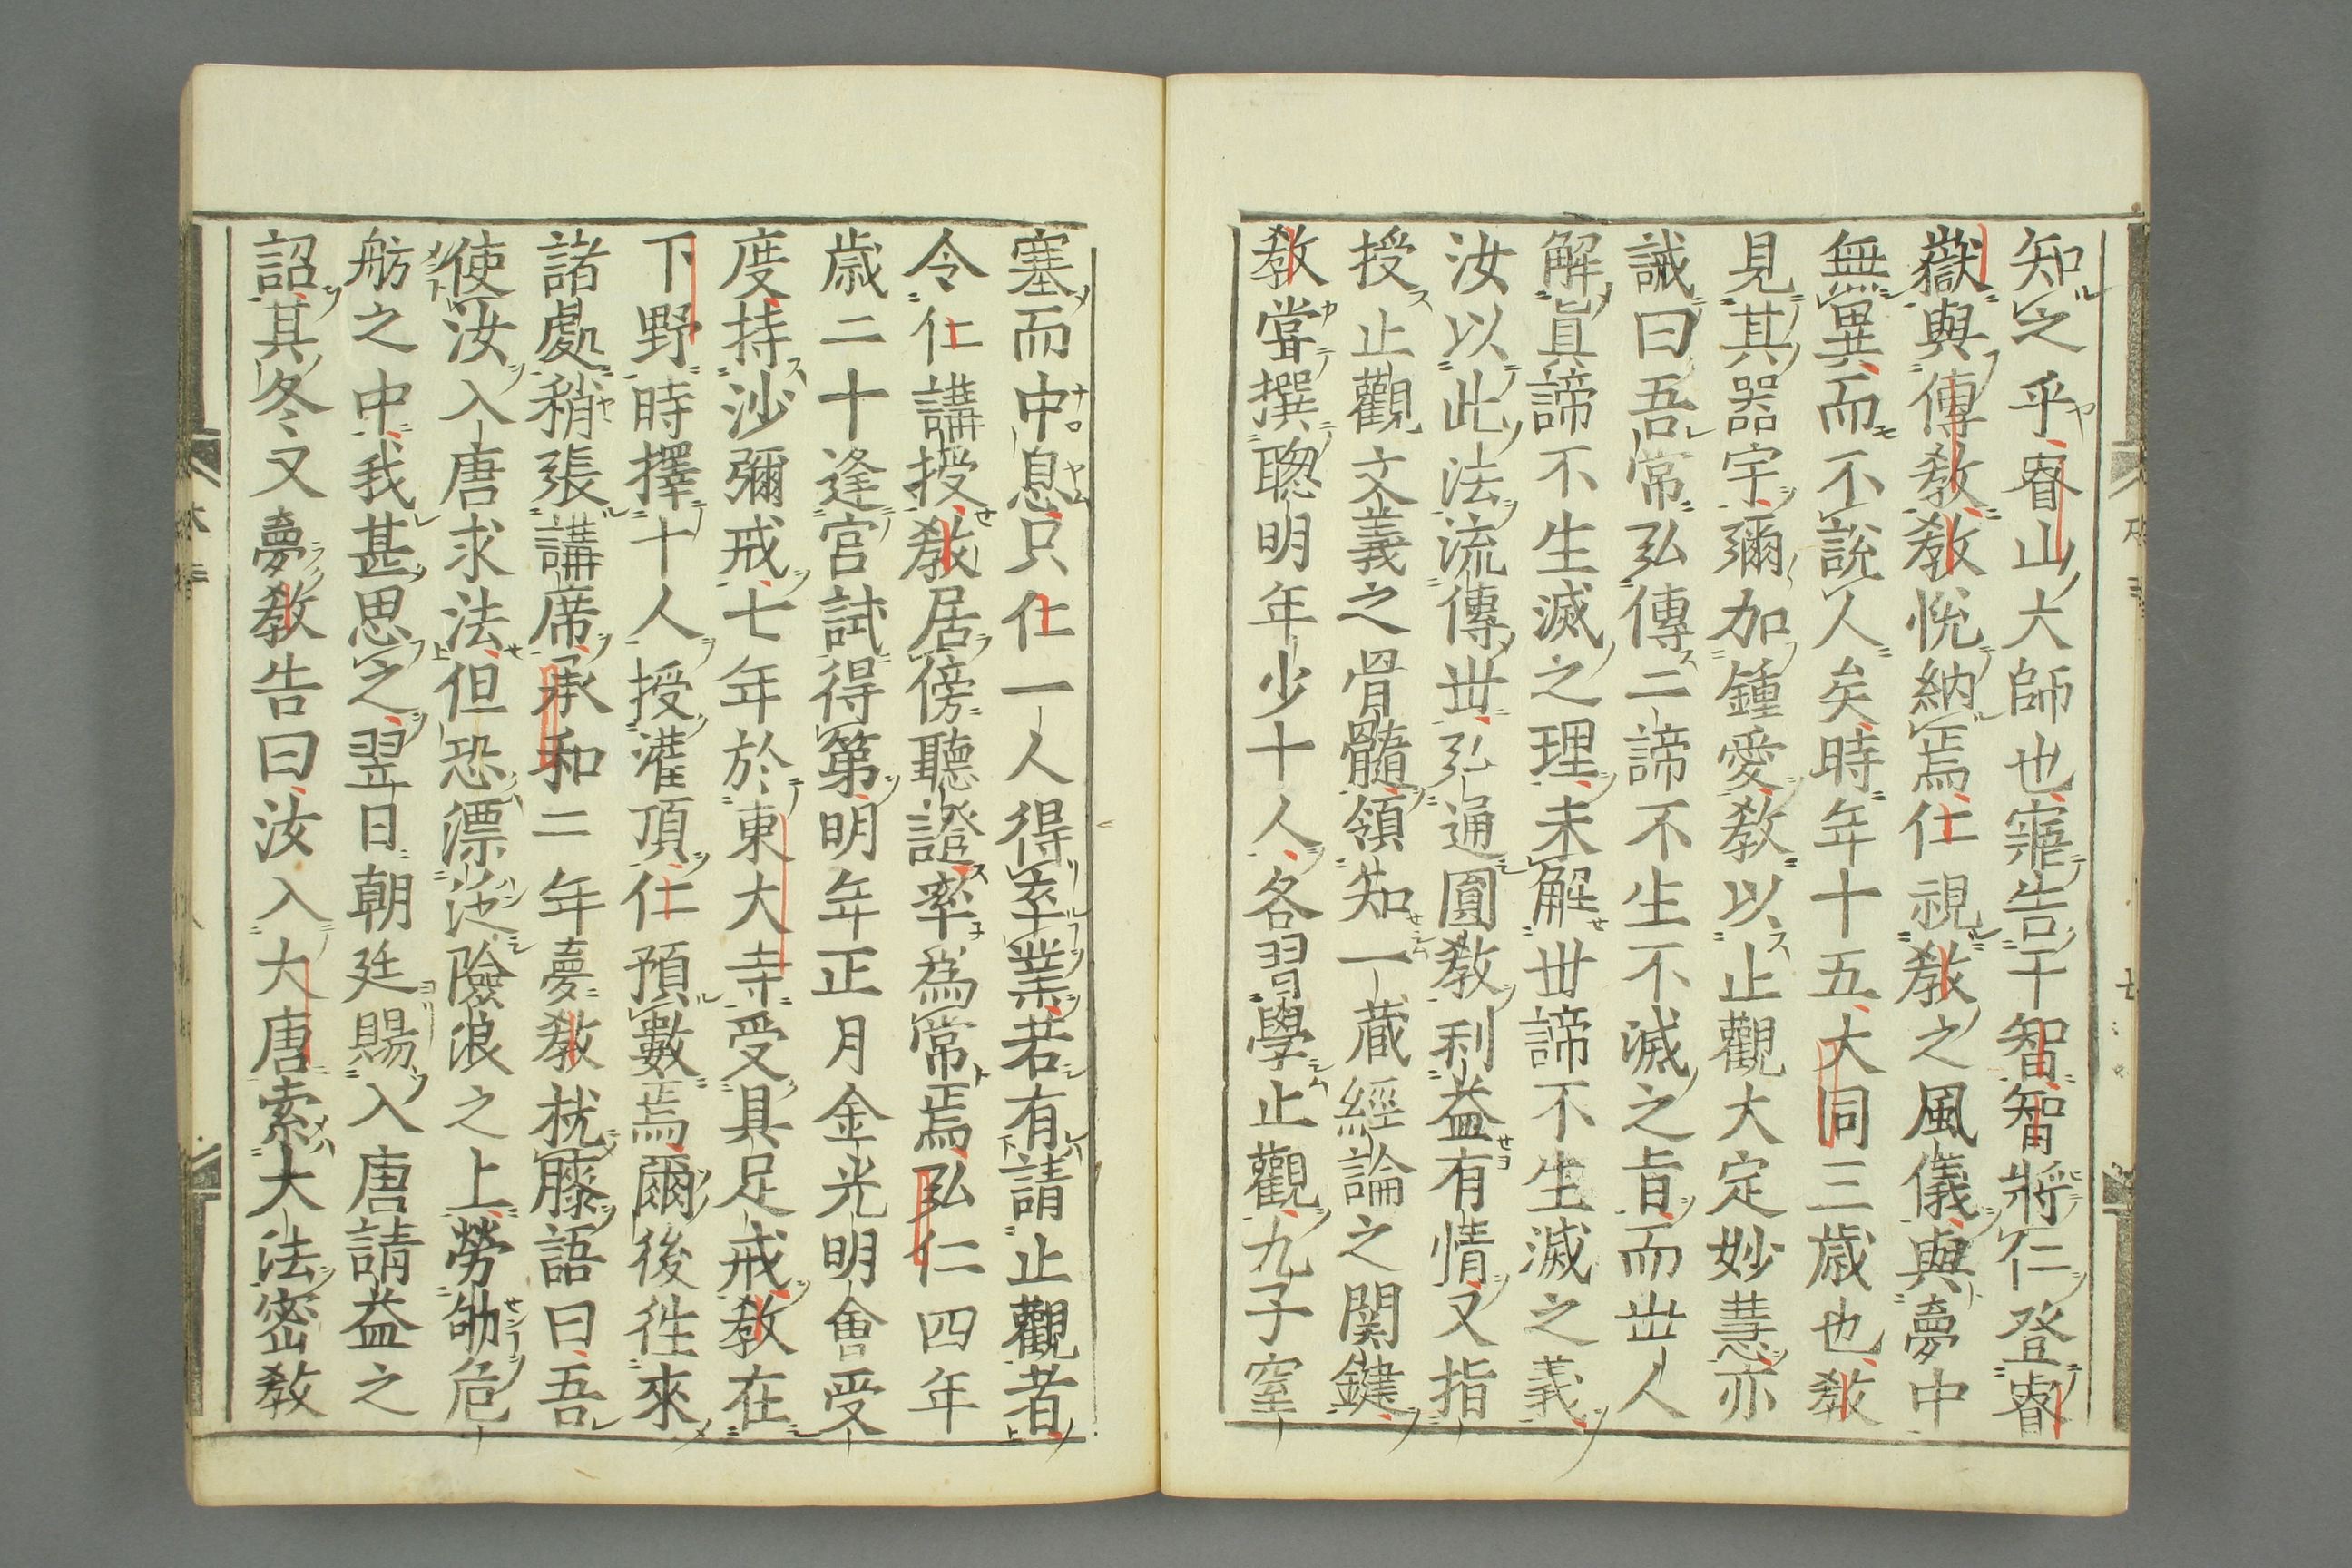 知之乎睿山大師也寤告于智智將仁登睿
嶽與傳教教悅納焉仁視教之風儀與夢中
無異而不說人矣時年十五大同三歲也教
見其器宇彌加鍾愛教以止觀大定妙慧亦
誡曰吾常弘傳二諦不生不滅之旨而世人
解眞諦不生滅之理未解世諦不生滅之義
汝以此法流傳世弘通圓教利益有情又指
授止觀文義之骨髓領知一藏經論之関鍵
教嘗撰聰明年少十人各習學止觀九子窒
塞而中息只仁一人得卒業若有請止觀者
令仁講授教居傍聽證率為常焉弘仁四年
歲二十逢官試得第明年正月金光明會受
度持沙彌戒七年於東大寺受具足戒教在
下野時擇十人授灌頂仁預數焉爾後往來
諸處稍張講席承和二年夢教枕膝語曰吾
使汝入唐求法但恐漂泛險浪之上勞劬危
舫之中我甚思之翌日朝廷賜入唐請益之
詔其冬又夢教告曰汝入大唐索大法密教
七